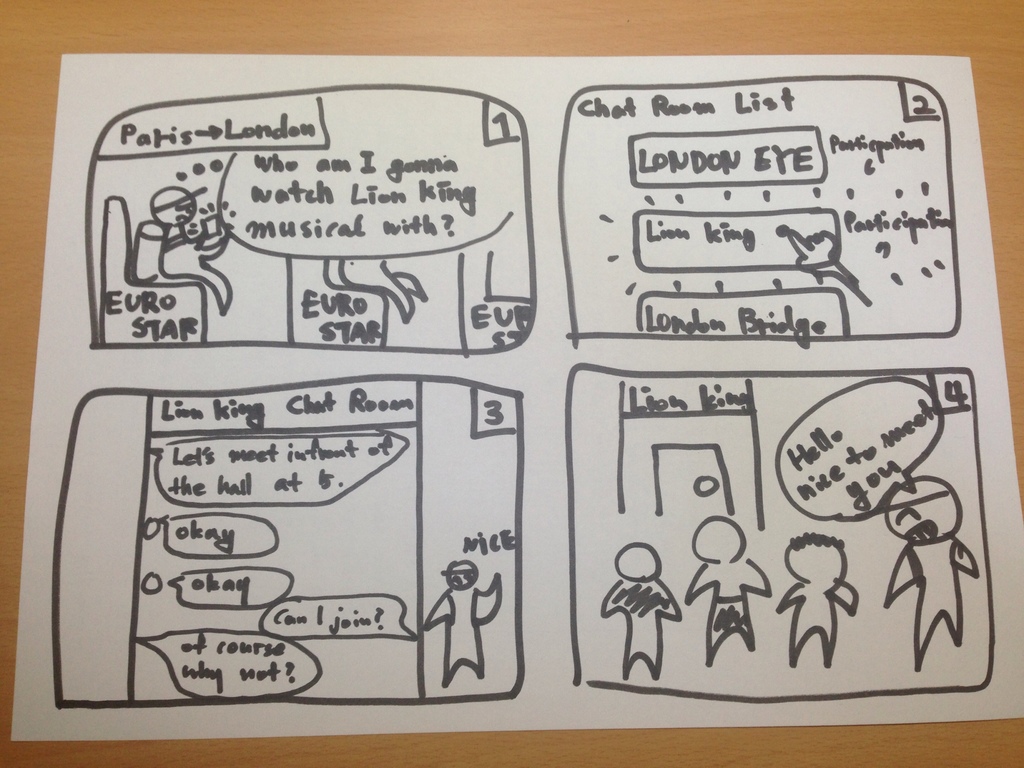 1
Paris→London
Who am I gonna
watch Lion king
musical with?
EURO
STAR
EURO
STAR
EUR
ST
2
Chat Room List
LONDON EYE
Participation
6
Lion king
Participation
London Bridge
3
Lion king Chat Room
Let's meet infront of
the hall at 5.
okay
okay
Can I join?
of course
why not?
NICE
4
Lion king
Hello
nice to meet
you